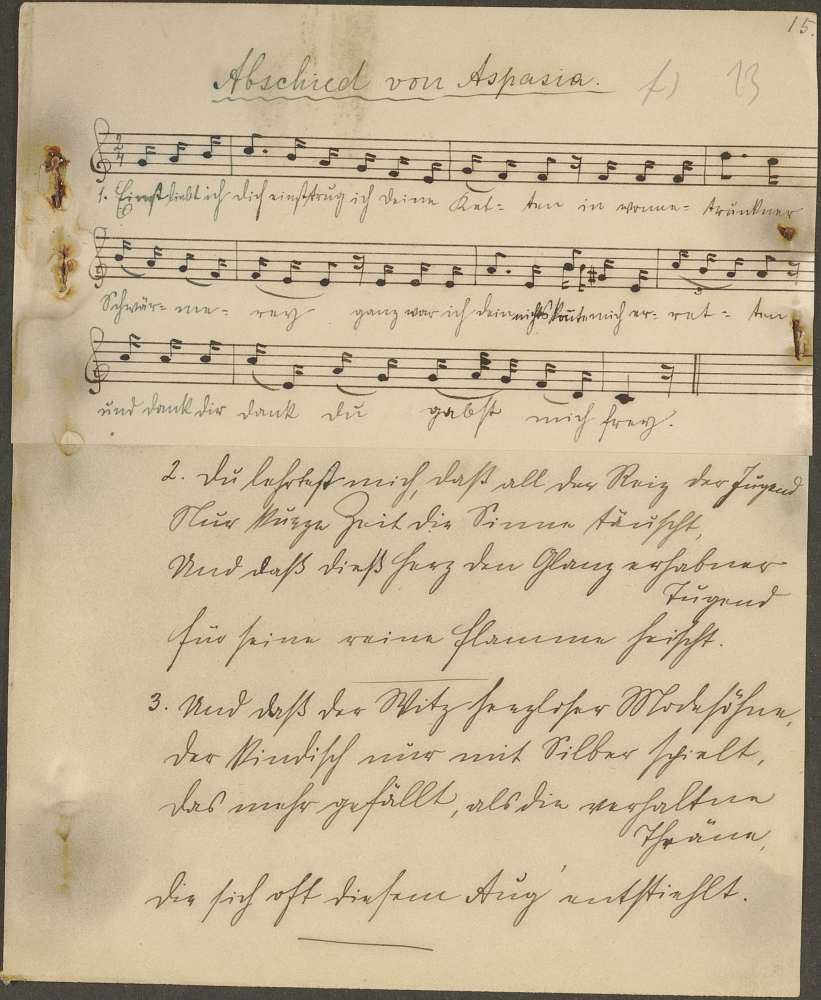 15.
Abschied von Aspasia. f) 13
1. Einst liebt ich dich einst trug ich deine Ket= ten in wonne= trunkner
Schwär= me= rey ganz war ich dein nichts konnte mich er= ret= ten
und dank dir dank du gabst mich frey.
2. Du lehrtest mich, daß all der Reiz der Jugend
Nur kurze Zeit die Sinne täuscht,
Und daß dieß Herz den Glanz erhabner
Tugend
für seine reine Flamme heischt.
3. Und daß der Witz herzloser Modesöhne,
der kindisch nur mit Silber spielt,
das mehr gefällt, als die verhaltne
Thräne,
die sich oft diesem Aug' entstiehlt.